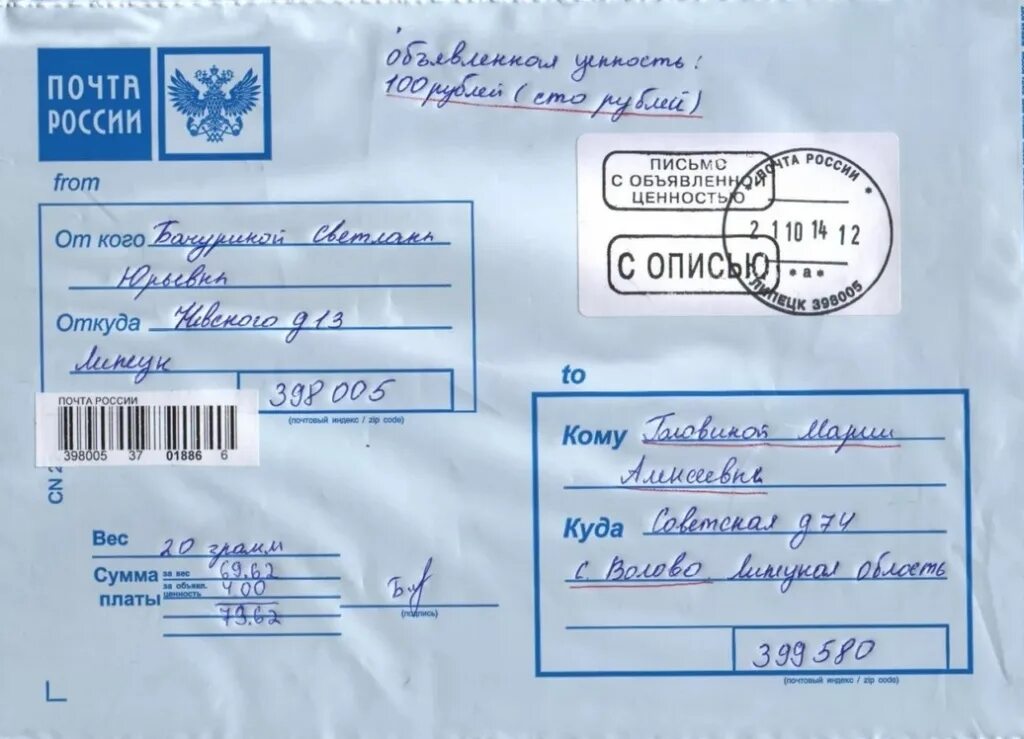 Объявленная ценность:
100 рублей (сто рублей)
ПОЧТА
РОССИИ
ПИСЬМО
С ОБЪЯВЛЕННОЙ
ЦЕННОСТЬЮ
С ОПИСЬЮ
ПОЧТА РОССИИ
21 10 14 12
*а*
ЛИПЕЦК 398005
from
От кого Бачуриной Светланы
Юрьевны
Откуда Невского д 13
Липецк
398 005
(почтовый индекс / zip code)
ПОЧТА РОССИИ
398005 37 01886 6
CN
to
Кому Головиной Марии
Алексеевне
Куда Советская д 74
с. Волово Липецкая область
399580
(почтовый индекс / zip code)
Вес 20 грамм
Сумма за вес 69.62
платы за объявл. ценность 4 00
73.62
(подпись)